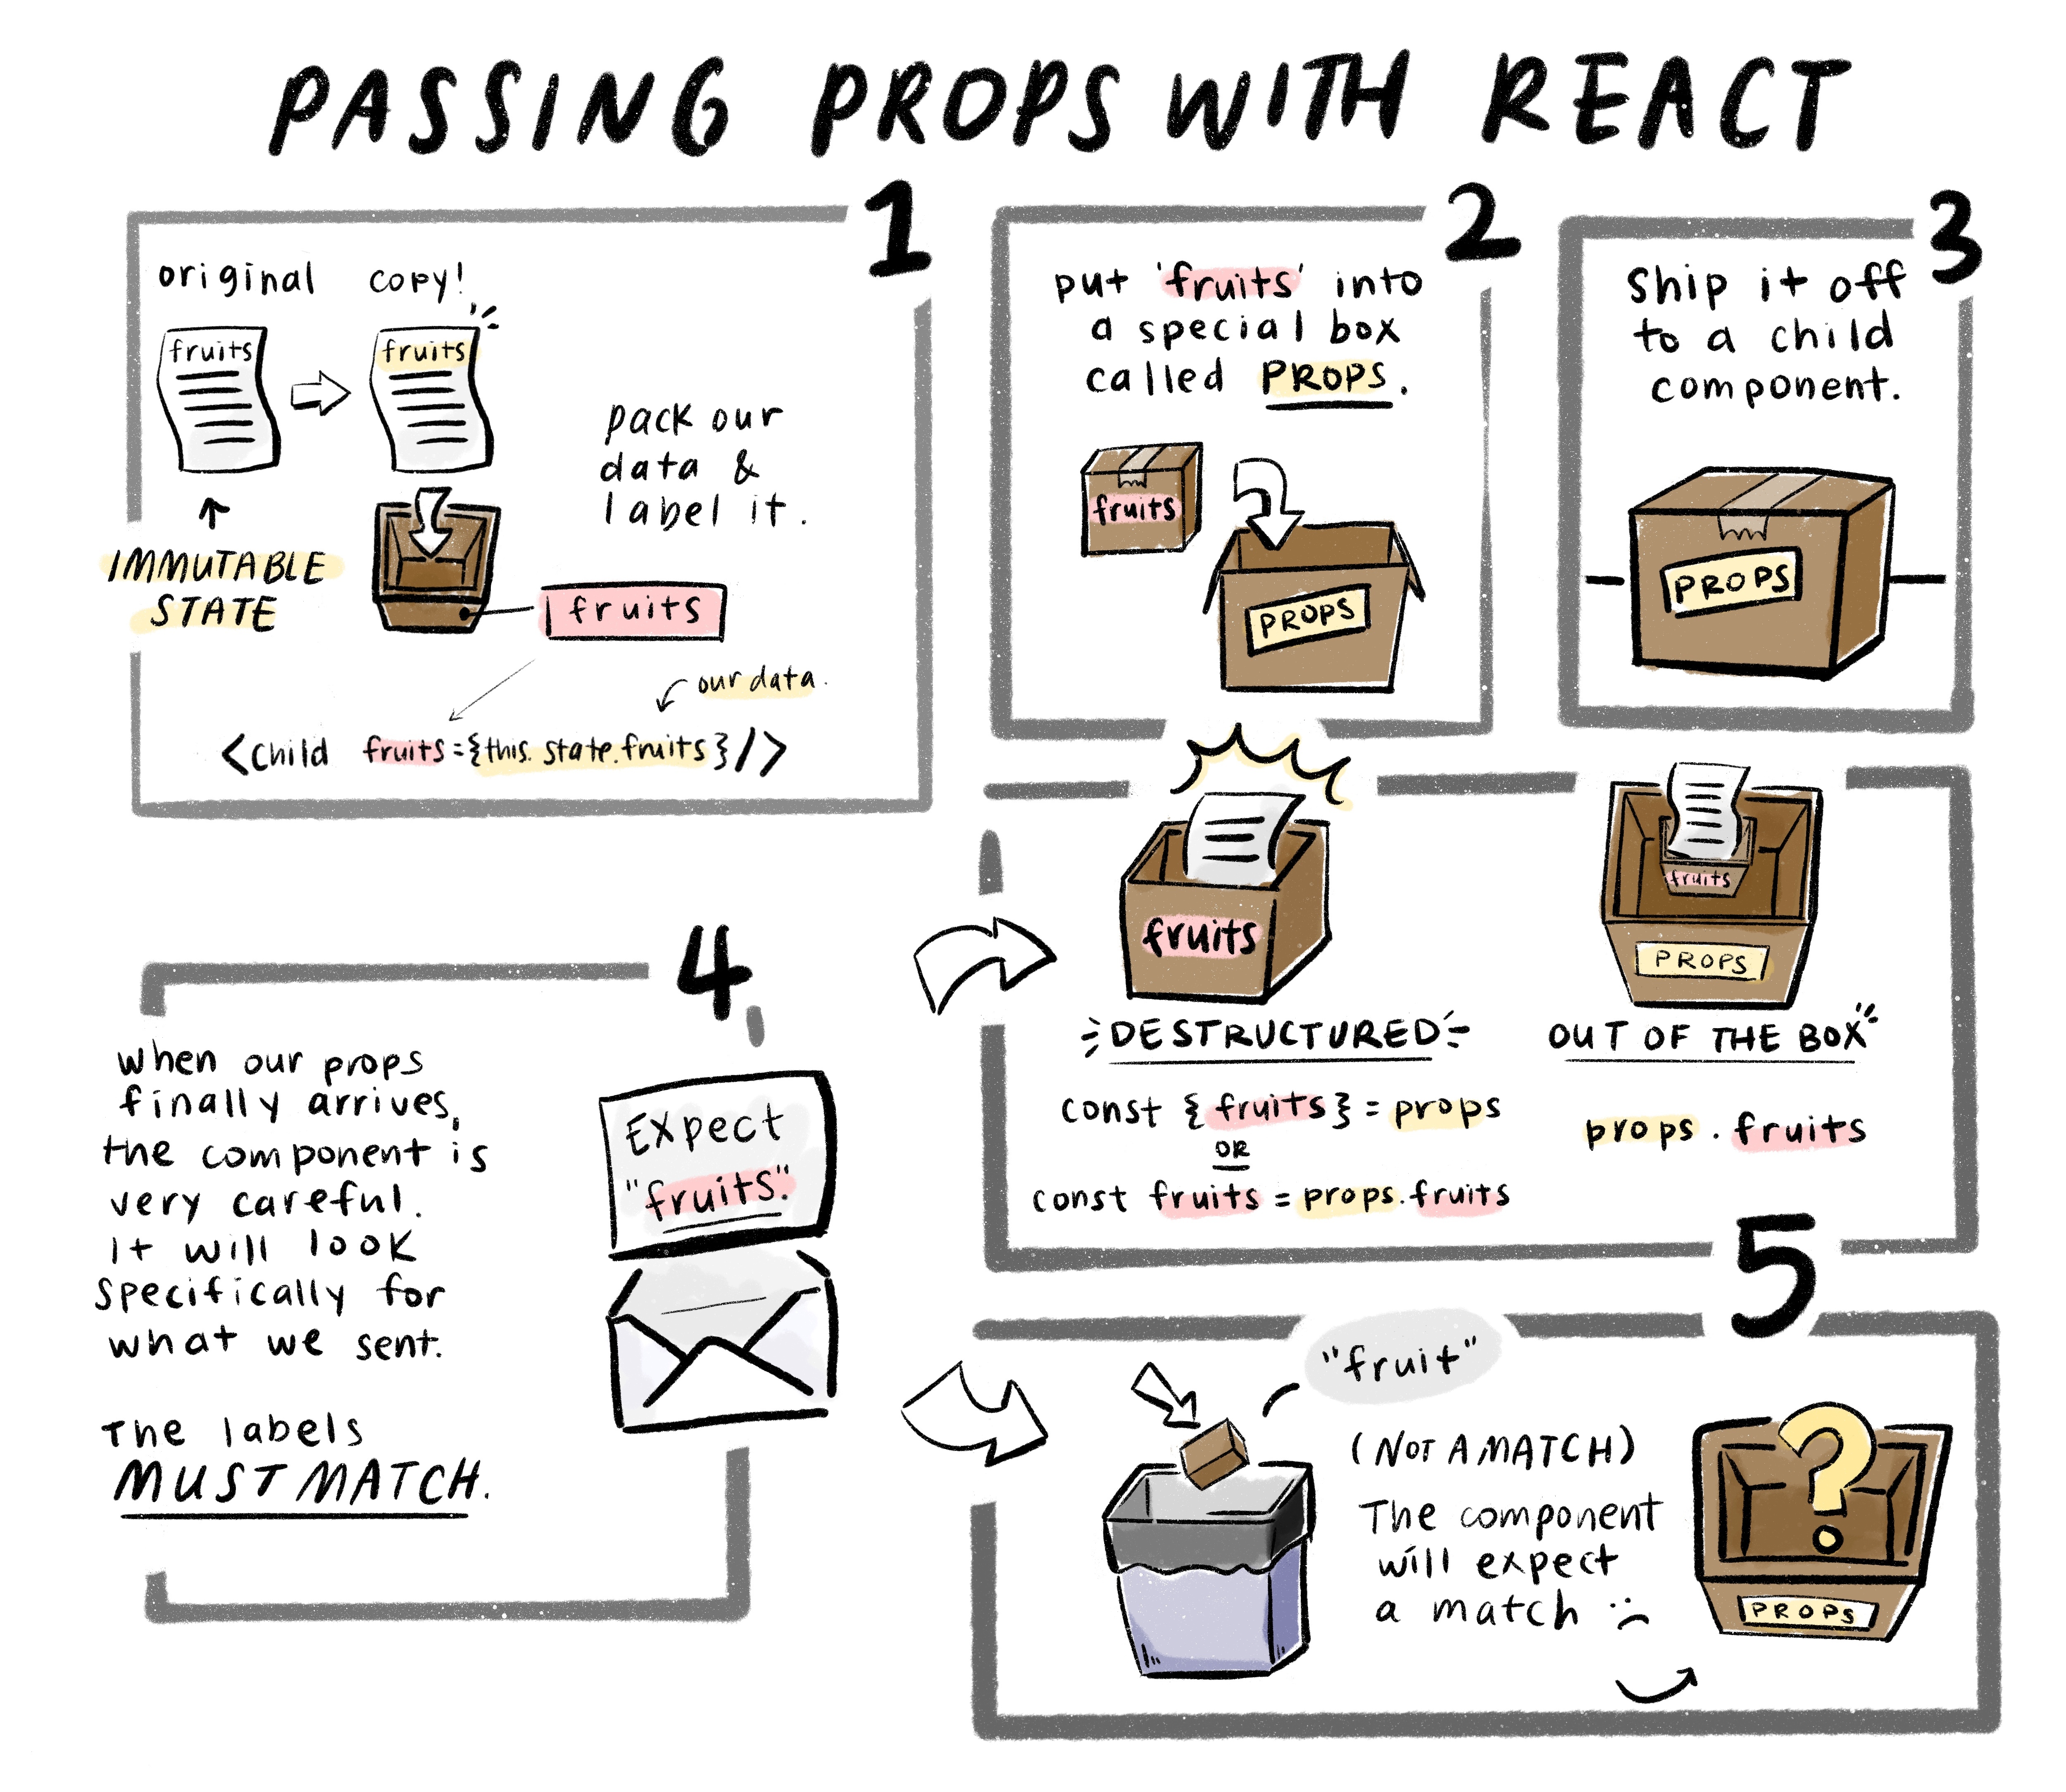 PASSING PROPS WITH REACT
1
original
copy!
fruits
fruits
IMMUTABLE
STATE
pack our
data &
label it.
fruits
our data.
<child fruits={this.state.fruits}/>
2
put 'fruits' into
a special box
called PROPS.
fruits
PROPS
3
Ship it off
to a child
component.
PROPS
4
when our props
finally arrives,
the component is
very careful.
It will look
specifically for
what we sent.
The labels
MUST MATCH.
Expect
"fruits."
fruits
DESTRUCTURED
const {fruits} = props
OR
const fruits = props.fruits
fruits
PROPS
OUT OF THE BOX
props.fruits
5
"fruit"
(NOT A MATCH)
The component
will expect
a match :(
PROPS